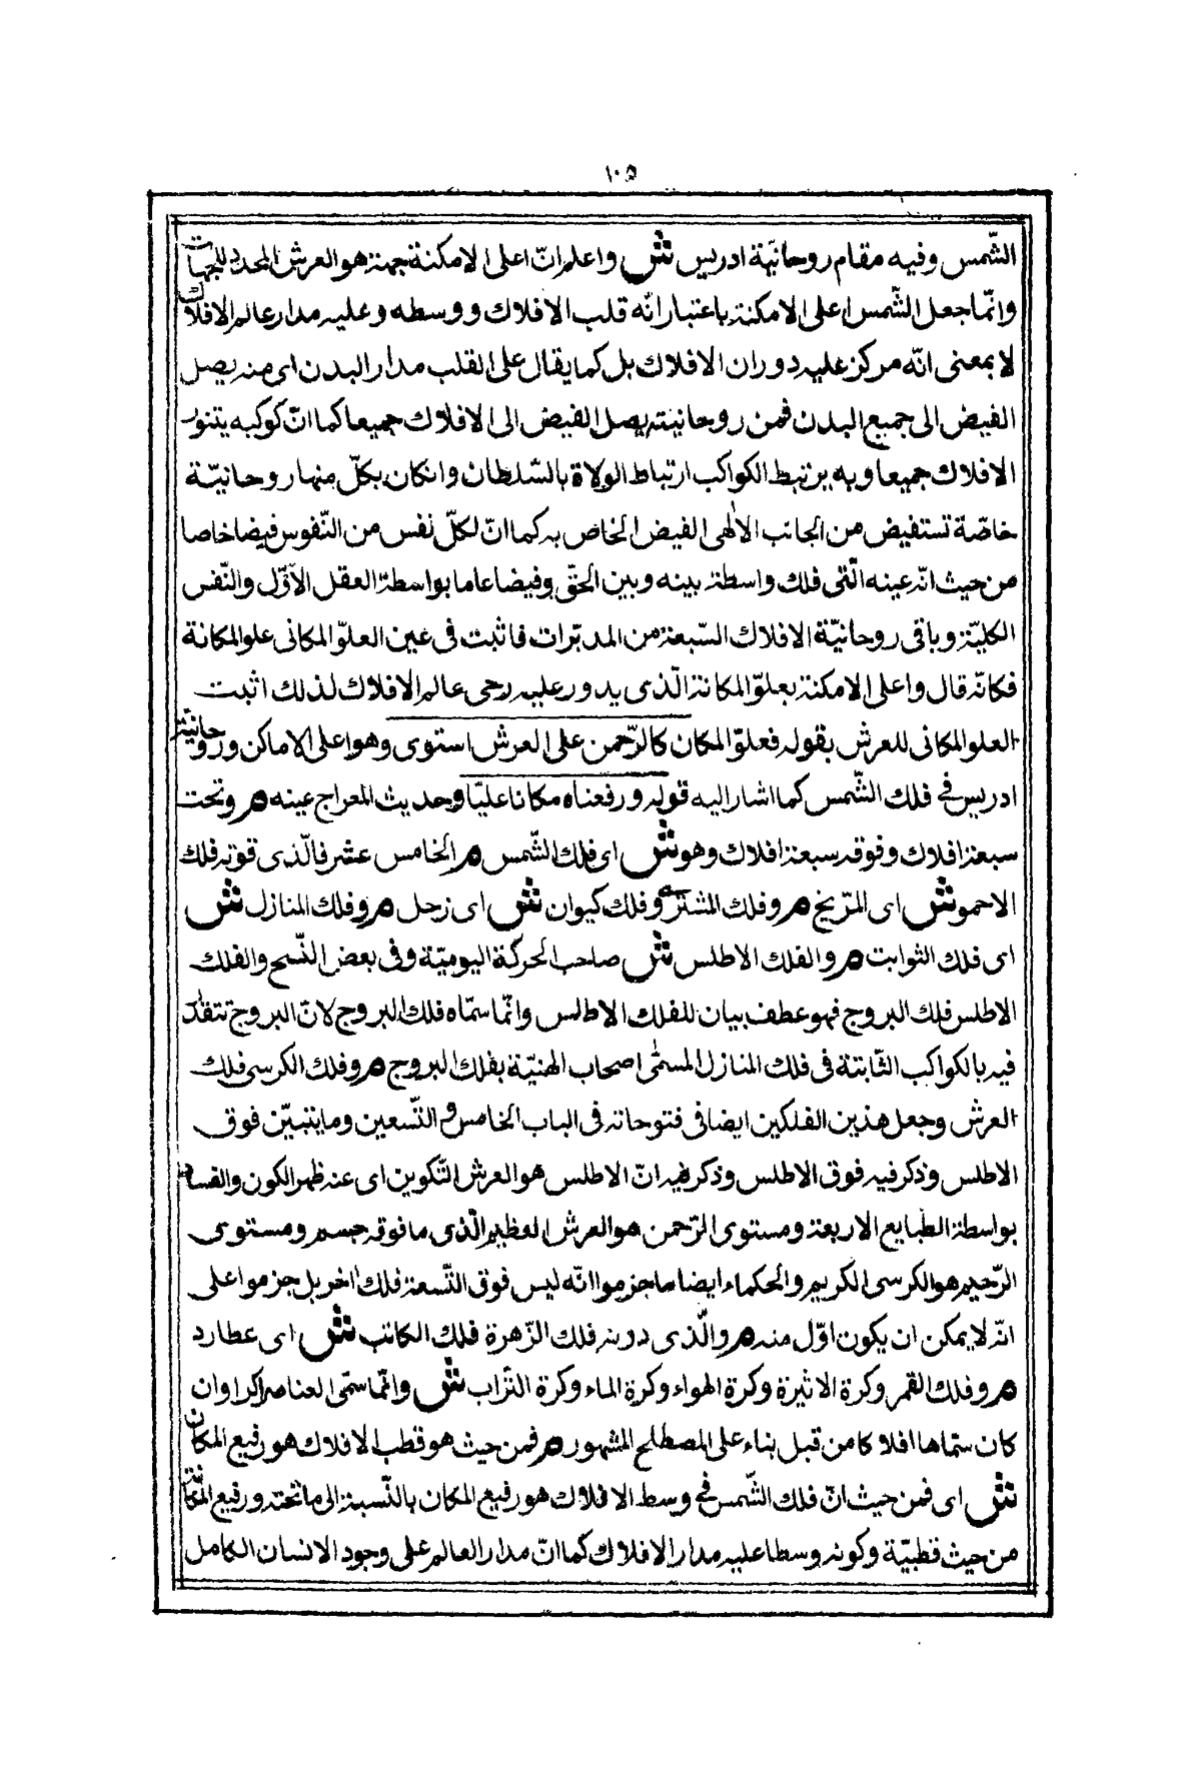 ١٠٥
الشّمس وفيه مقام روحانيّة ادريس ش واعلم انّ اعلى الامكنة جهة هو العرش المحدد للجهات
وانّما جعل الشّمس اعلى الامكنة باعتبار انّه قلب الافلاك ووسطه وعليه مدار عالم الافلاك
لا بمعنى انّه مركز عليه دوران الافلاك بل كما يقال على القلب مدار البدن اى منه يصل
الفيض الى جميع البدن فمن روحانيته يصل الفيض الى الافلاك جميعا كما انّ كوكبه يتنور
الافلاك جميعا وبه يرتبط الكواكب ارتباط الولاة بالسّلطان وانكان بكلّ منها روحانيّة
خاصّة تستفيض من الجانب الالٰهى الفيض الخاص به كما انّ لكلّ نفس من النّفوس فيضا خاصا
من حيث انّه عينه الّتى فلك واسطة بينه وبين الحقّ وفيضا عاما بواسطة العقل الاوّل والنّفس
الكليّة وباقى روحانيّة الافلاك السّبعة من المدبّرات فاثبت فى عين العلوّ المكانى علو المكانة
فكانّه قال واعلى الامكنة بعلوّ المكانة الّذى يدور عليه رحى عالم الافلاك لذلك اثبت
العلو المكانى للعرش بقوله فعلوّ المكان كالرّحمن على العرش استوى وهو اعلى الاماكن وروحانيّة
ادريس فى فلك الشّمس كما اشار اليه قوله ورفعناه مكانا عليّا وحديث المعراج عينه م وتحت
سبعة افلاك وفوقه سبعة افلاك وهو ش اى فلك الشّمس م الخامس عشر فالّذى فوقه فلك
الاحمر ش اى المرّيخ م وفلك المشترى وفلك كيوان ش اى زحل م وفلك المنازل ش
اى فلك الثوابت م والفلك الاطلس ش صاحب الحركة اليوميّة وفى بعض النّسخ والفلك
الاطلس فلك البروج فهو عطف بيان للفلك الاطلس وانّما سمّاه فلك البروج لانّ البروج تتقدّر
فيه بالكواكب الثّابتة فى فلك المنازل المسمّى اصحاب الهيّئة بفلك البروج م وفلك الكرسى فلك
العرش وجعل هذين الفلكين ايضا فى فتوحاته فى الباب الخامس والتّسعين ومايتبيّن فوق
الاطلس وذكر فيه فوق الاطلس وذكر فيه انّ الاطلس هو العرش التّكوين اى عنه ظهر الكون والفساد
بواسطة الطبايع الاربعة ومستوى الرّحمن هو العرش العظيم الّذى ما فوقه جسم ومستوى
الرّحيم هو الكرسى الكريم والحكماء ايضا ما جزموا انّه ليس فوق التّسعة فلك اخر بل جزموا على
انّه لا يمكن ان يكون اقل منه م والّذى دونه فلك الزّهرة فلك الكاتب ش اى عطارد
م وفلك القمر وكرة الاثيرة وكرة الهواء وكرة الماء وكرة التراب ش وانّما سمّى العناصر اكرا وان
كان سمّاها افلاكا من قبل بناء على المصطلح المشهور م فمن حيث هو قطب الافلاك هو رفيع المكان
ش اى فمن حيث انّ فلك الشّمس فى وسط الافلاك هو رفيع المكان بالنّسبة الى ما تحته ورفيع المكانة
من حيث قطبيّة وكونه وسطا عليه مدار الافلاك كما انّ مدار العالم على وجود الانسان الكامل